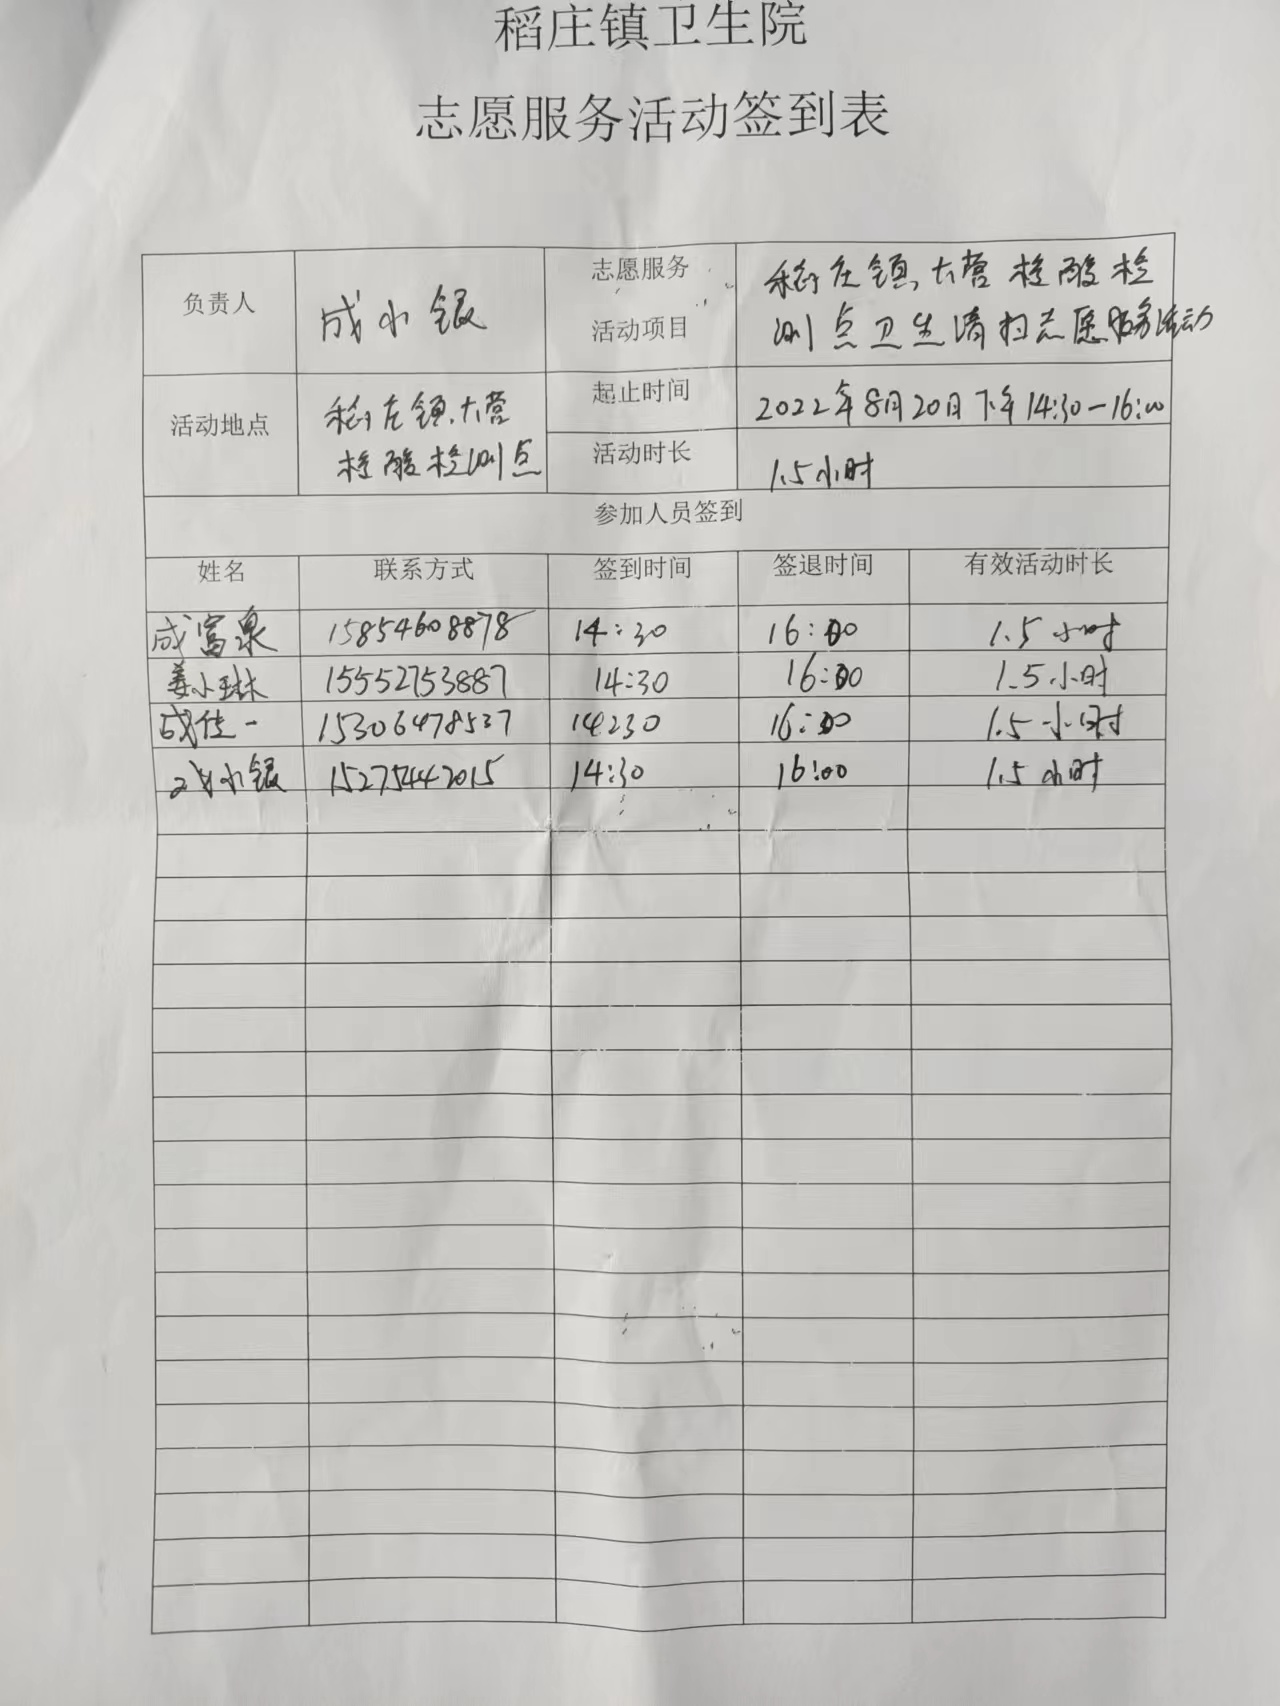 稻庄镇卫生院
志愿服务活动签到表
负责人
成小银
志愿服务
活动项目
稻庄镇大营核酸检
测点卫生清扫志愿服务活动
活动地点
稻庄镇大营
核酸检测点
起止时间
2022年8月20日下午14:30-16:00
活动时长
1.5小时
参加人员签到
姓名 联系方式 签到时间 签退时间 有效活动时长
成富泉 15854608878 14:30 16:00 1.5小时
姜小琳 15552753887 14:30 16:00 1.5小时
成佳一 15306478537 14:30 16:00 1.5小时
成小银 15275442015 14:30 16:00 1.5小时